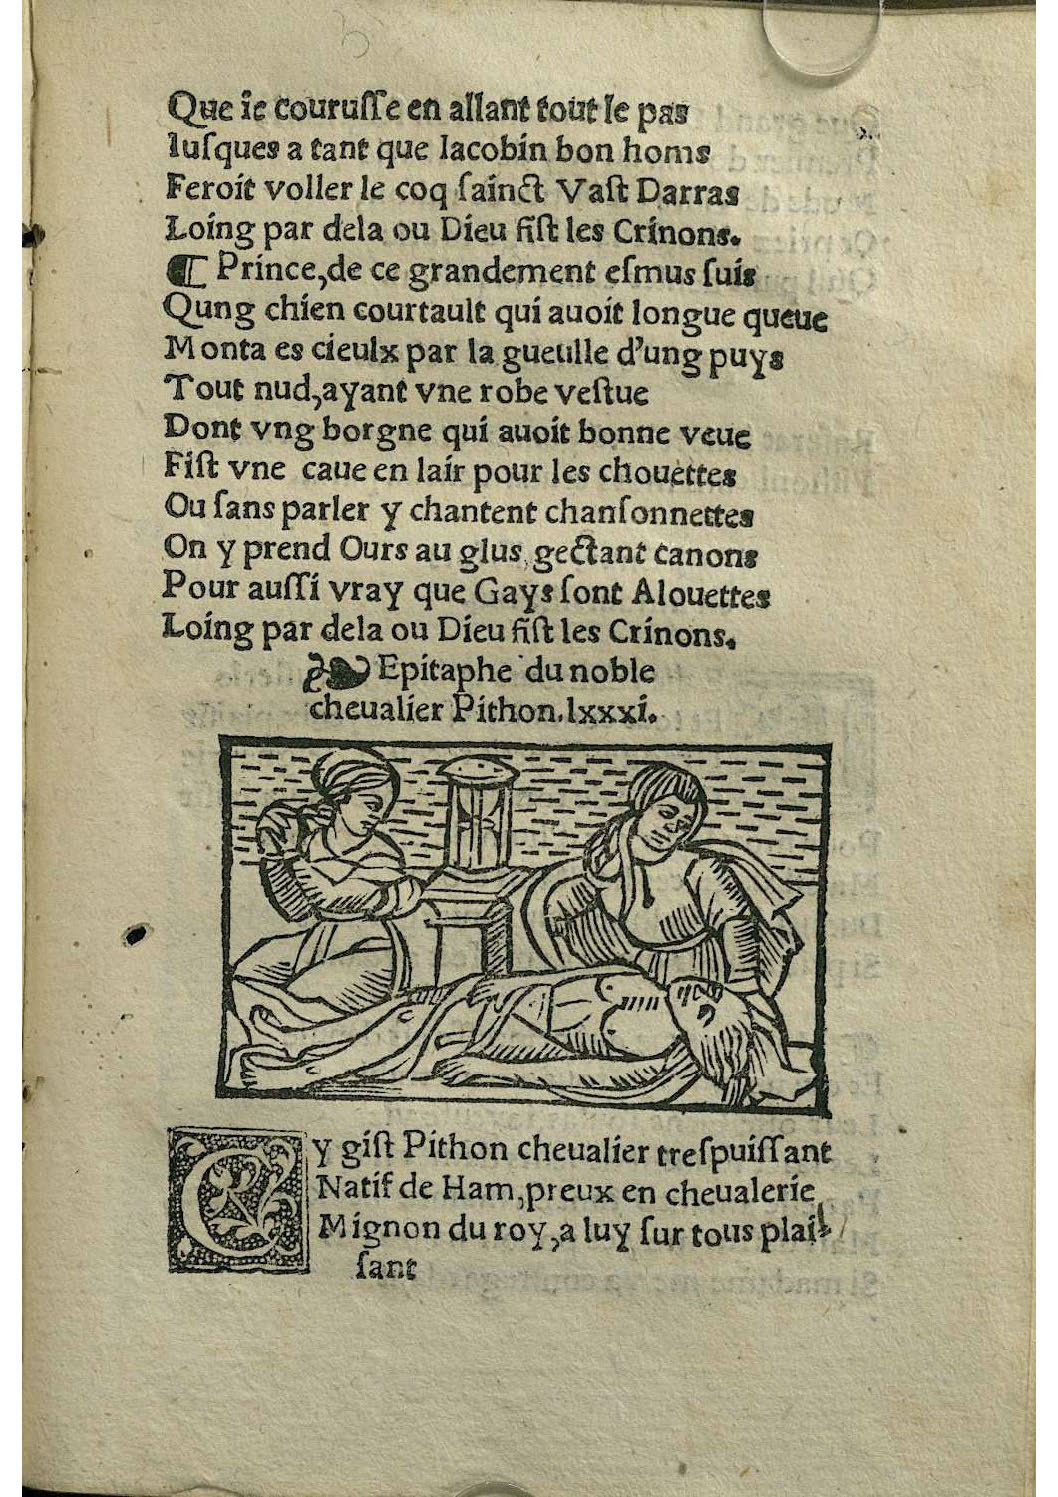 Que ie couruſſe en allant tout le pas
Iuſques a tant que Iacobin bon homs
Feroit voller le coq ſainct Vaſt Darras
Loing par dela ou Dieu fiſt les Crinons.
¶ Prince, de ce grandement eſmus ſuis
Qung chien courtault qui auoit longue queue
Monta es cieulx par la gueulle d'ung puys
Tout nud, ayant vne robe veſtue
Dont vng borgne qui auoit bonne veue
Fiſt vne caue en lair pour les chouettes
Ou ſans parler y chantent chanſonnettes
On y prend Ours au glus, gectant canons
Pour auſſi vray que Gays ſont Alouettes
Loing par dela ou Dieu fiſt les Crinons.
❧ Epitaphe du noble
cheualier Pithon. lxxxi.
Cy giſt Pithon cheualier treſpuiſſant
Natif de Ham, preux en cheualerie
Mignon du roy, a luy ſur tous plai-
ſant